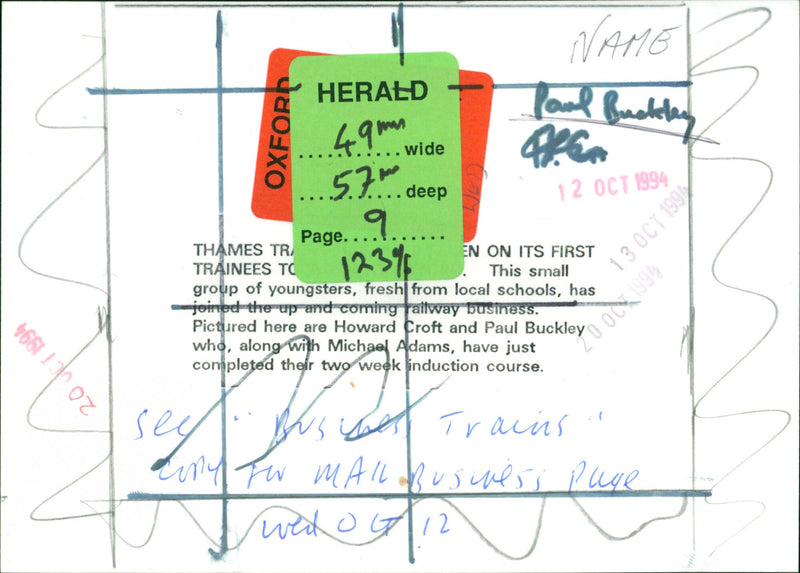 NAME
Paul Buckley
12 OCT 1994
13 OCT 1994
20 OCT 1994
20 OCT 1994
OXFORD
HERALD
49mm wide
57mm deep
Page 9
123%
THAMES TRA EN ON ITS FIRST
TRAINEES TO . This small
group of youngsters, fresh from local schools, has
joined the up and coming railway business.
Pictured here are Howard Croft and Paul Buckley
who, along with Michael Adams, have just
completed their two week induction course.
See "Business Trains"
copy for MAIL Business Page
Wed OCT 12